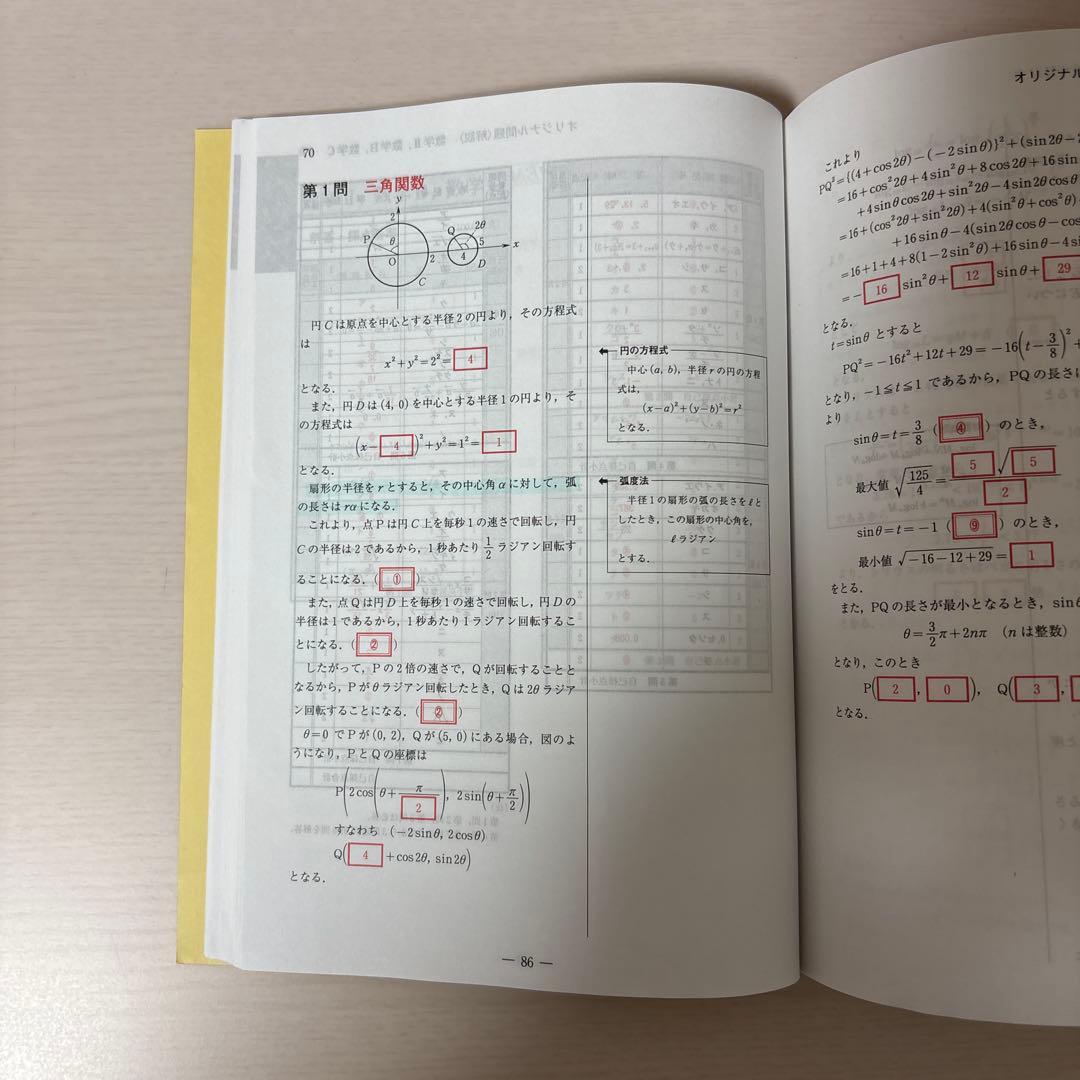 70
第1問 三角関数
y
2
P
θ
O
2
C
Q
2θ
5
4
D
x
円Cは原点を中心とする半径2の円より，その方程式
は
x²+y²=2²=4
となる．
また，円Dは(4, 0)を中心とする半径1の円より，そ
の方程式は
(x-4)²+y²=1²=1
となる．
扇形の半径をrとすると，その中心角αに対して，弧
の長さはrαになる．
これより，点Pは円C上を毎秒1の速さで回転し，円
Cの半径は2であるから，1秒あたり1/2ラジアン回転す
ることになる．(①)
また，点Qは円D上を毎秒1の速さで回転し，円Dの
半径は1であるから，1秒あたり1ラジアン回転するこ
とになる．(②)
したがって，Pの2倍の速さで，Qが回転することと
なるから，Pがθラジアン回転したとき，Qは2θラジア
ン回転することになる．(②)
θ=0でPが(0, 2)，Qが(5, 0)にある場合，図のよ
うになり，PとQの座標は
P(2cos(θ+π/2), 2sin(θ+π/2))
すなわち (-2sinθ, 2cosθ)
Q(4+cos2θ, sin2θ)
となる．
円の方程式
中心(a, b)，半径rの円の方程
式は，
(x-a)²+(y-b)²=r²
となる．
弧度法
半径1の扇形の弧の長さをℓと
したとき，この扇形の中心角を，
ℓラジアン
とする．
— 86 —
オリジナル
これより
PQ²={(4+cos2θ)-(-2sinθ)}²+(sin2θ-2
=16+cos²2θ+4sin²θ+8cos2θ+16sin
+4sinθcos2θ+sin²2θ-4sin2θcosθ
=16+(cos²2θ+sin²2θ)+4(sin²θ+cos²θ)+
+16sinθ-4(sin2θcosθ-cos
=16+1+4+8(1-2sin²θ)+16sinθ-4si
=-16sin²θ+12sinθ+29
となる．
t=sinθとすると
PQ²=-16t²+12t+29=-16(t-3/8)²+
となり，-1≦t≦1であるから，PQの長さは
より
sinθ=t=3/8 (④)のとき，
最大値 √(125/4)=5√5/2
sinθ=t=-1 (⑨)のとき，
最小値 √(-16-12+29)=1
をとる．
また，PQの長さが最小となるとき，sinθ
θ=3/2π+2nπ (nは整数)
となり，このとき
P(2, 0)， Q(3,
となる．